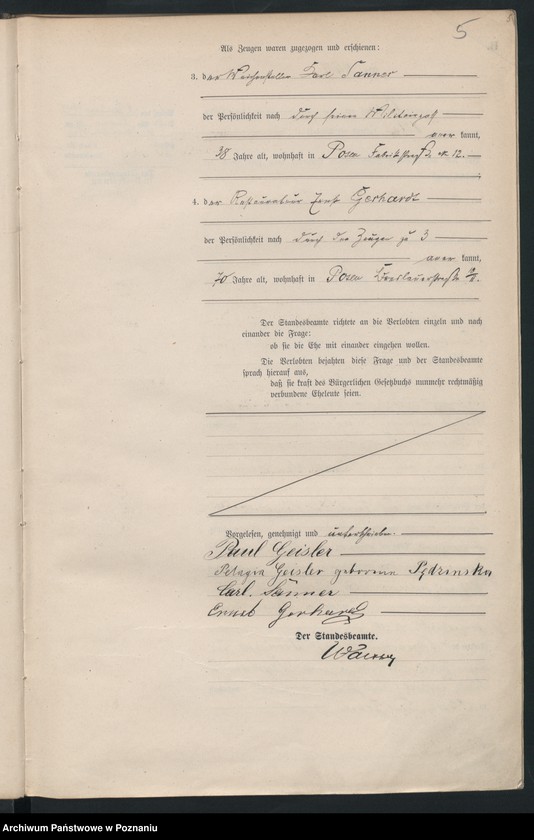 5
Als Zeugen waren zugezogen und erschienen:
3. der Weichensteller Karl Sanner
der Persönlichkeit nach durch seinen Militärpaß
aner kannt,
38 Jahre alt, wohnhaft in Posen Fabrikstraße 12.
4. der Restaurateur Ernst Gerhardt
der Persönlichkeit nach durch den Zeugen zu 3
aner kannt,
70 Jahre alt, wohnhaft in Posen Breslauerstraße
Der Standesbeamte richtete an die Verlobten einzeln und nach
einander die Frage:
ob sie die Ehe mit einander eingehen wollen.
Die Verlobten bejahten diese Frage und der Standesbeamte
sprach hierauf aus,
daß sie kraft des Bürgerlichen Gesetzbuchs nunmehr rechtmäßig
verbundene Eheleute seien.
Vorgelesen, genehmigt und unterschrieben.
Paul Geisler
Pelagia Geisler geborene
Carl. Sanner
Ernst Gerhardt
Der Standesbeamte.
Archiwum Państwowe w Poznaniu